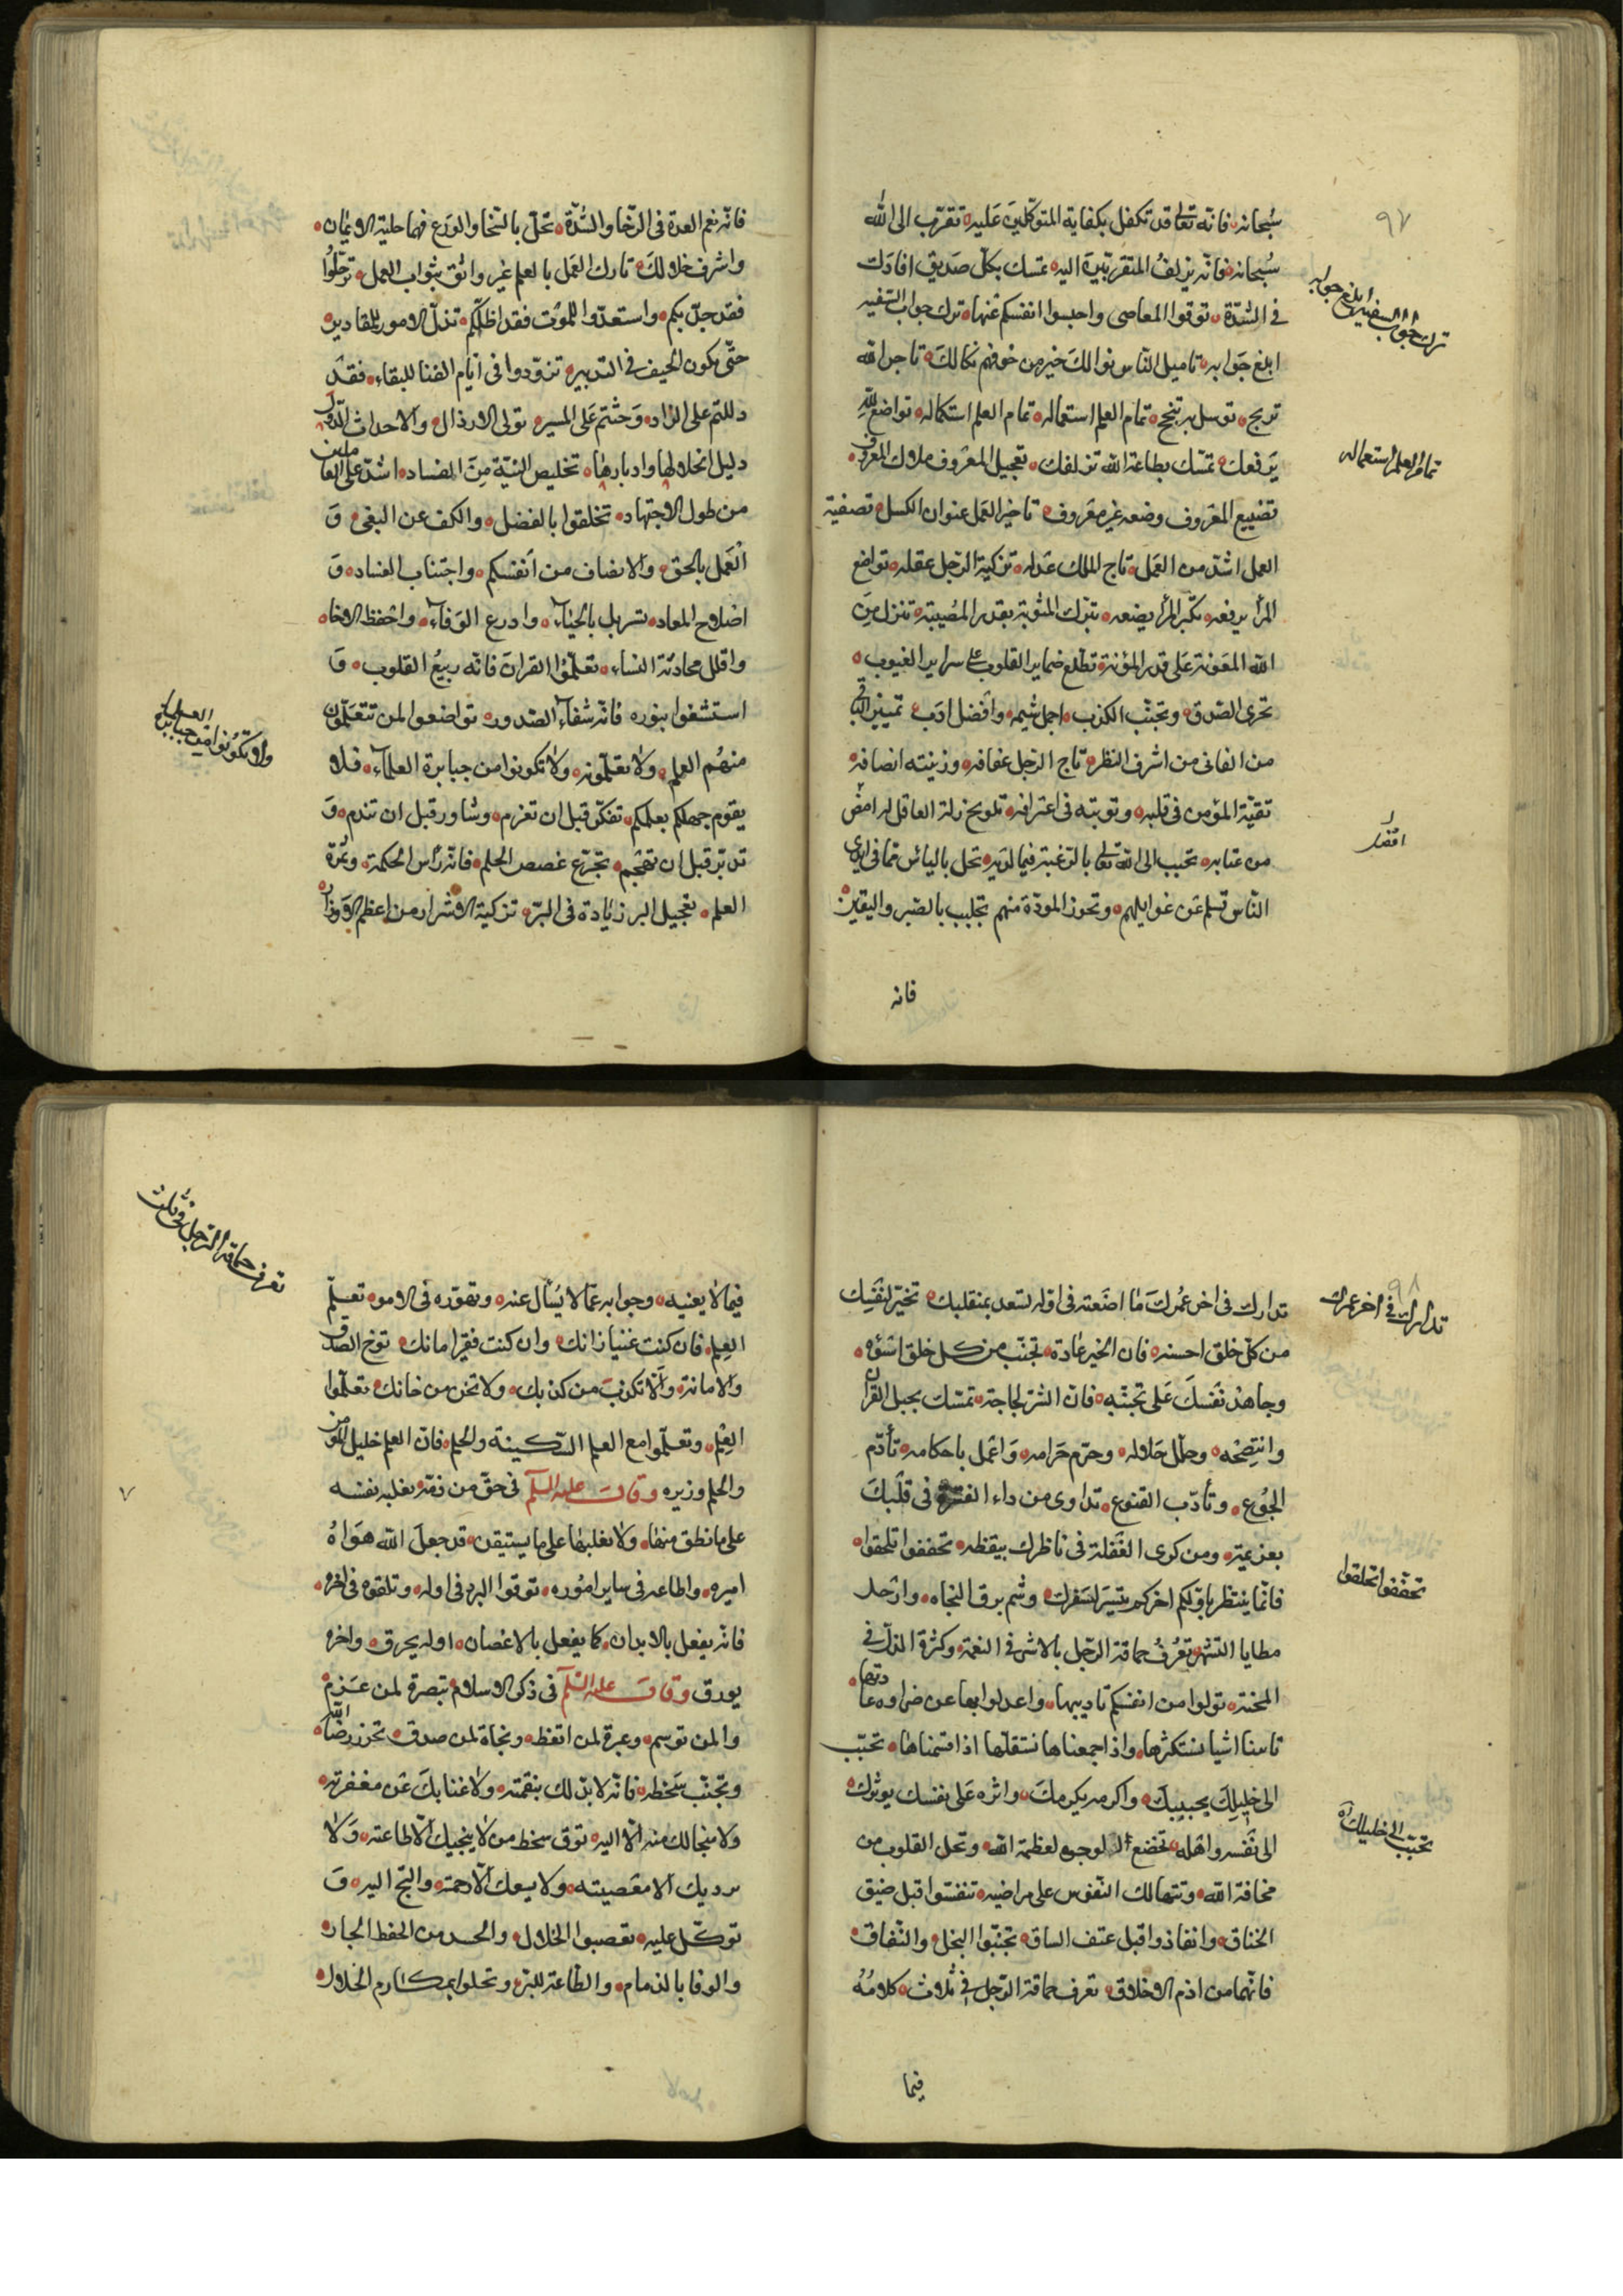 ٩٧
سبحانه فانه تعالى قد تكفل بكفاية المتوكلين عليه تقرب الى الله
سبحانه فانه يزلف المتقربين اليه تمسك بكل صديق افادتك
في الشدة توقوا المعاصى واحبسوا انفسكم عنها ترك جواب السفيه
ابلغ جوابه تاميل الناس نوالك خير من خوفهم نكالك تاجر الله
تربح توسل به تنجح تمام العلم استعماله تمام العلم استكماله تواضع لله
يرفعك تمسك بطاعة الله تزلفك تعجيل المعروف ملاك المعروف
تضييع المعروف وضعه غير معروف تاخير العمل عنوان الكسل تصفية
العمل اشد من العمل تاج الملك عدله تزكية الرجل عقله تواضع
المرأ يرفعه تكبر المرأ يضعه تنزل المثوبة بقدر المصيبة تنزل من
الله المعونة على قدر المؤنة تطلع ضماير القلوب على سراير الغيوب
تحرى الصدق وتجنب الكذب اجمل شيمه وافضل ادب تمييز الباقى
من الفانى من اشرف النظر تاج الرجل عفافه وزينته انصافه
تقية المؤمن فى قلبه وتوبته فى اعترافه تلويح زلة العاقل له امض
من عتابه تحبب الى الله تعالى بالرغبة فيما لديه تحل بالياس مما فى ايدى
الناس تسلم من غوايلهم وتحوز المودة منهم تجلبب بالصبر واليقين
فانه
ترك جواب السفيه ابلغ جوابه
تمام العلم استعماله
فانه نعم العدة فى الرخا والشدة تحل بالسخا والورع فهما حلية الايمان
واشرف خلالك تارك العمل بالعلم غير واثق بثواب العمل ترحلوا
فقد جد بكم واستعدوا للموت فقد اظلكم تذل الامور للمقادير
حتى يكون الحيف فى التدبير تزودوا فى ايام الفنا للبقاء فقد
دللتم على الزاد وحثثتم على المسير تولى الارذال والاحداث الدول
دليل انحلالها وادبارها تخليص النية من الفساد اشد على العاملين
من طول الاجتهاد تخلقوا بالفضل والكف عن البغى و
العمل بالحق والانصاف من انفسكم واجتناب الفساد و
اصلاح المعاد تسربل بالحياء وادرع الوفاء واحفظ الاخا
واقلل محادثة النساء تعلموا القران فانه ربيع القلوب و
استشفوا بنوره فانه شفاء الصدور تواضعوا لمن تتعلمون
منهم العلم ولا تعلمونه ولا تكونوا من جبابرة العلماء فلا
يقوم جهلكم بعلمكم تفكر قبل ان تعزم وشاور قبل ان تندم و
تدبر قبل ان تهجم تجرع غصص الحلم فانه رأس الحكمة وثمرة
العلم تعجيل البر زيادة فى البر تزكية الاشرار من اعظم الاوزار
ولا تكونوا من جبابرة العلماء
٩٨
تدارك فى اخر عمرك ما اضعته فى اوله تسعد بمنقلبك تخير لنفسك
من كل خلق احسنه فان الخير عادة تجنب من كل خلق اسوءه
وجاهد نفسك على تجنبه فان الشر لجاجة تمسك بحبل القران
وانتصحه وحلل حلاله وحرم حرامه واعمل باحكامه تأدم
الجوع وتأدب القنوع تداوى من داء الفترة فى قلبك
بعزيمة ومن كرى الغفلة فى ناظرك بيقظه تخففوا تلحقوا
فانما ينتظر باولكم اخركم تيسر لسفرك وشم برق النجاه وارحل
مطايا التشمر تعرف حماقة الرجل بالاشر فى النعمة وكثرة الذل فى
المحنة تولوا من انفسكم تاديبها واعدلوا بها عن ضراوة عاداتها
تامنا اشيا نستكثرها واذا جمعناها نستقلها اذا قسمناها تحبب
الى خليلك يحببك واكرمه يكرمك واثره على نفسك يوثرك
الى نفسه واهله تخضع الوجوه لعظمة الله وتحل القلوب من
مخافة الله وتتهالك النفوس على مراضيه تنفسوا قبل ضيق
الخناق وانقاذوا قبل عنف الساق تجنبوا البخل والنفاق
فانهما من اذم الاخلاق تعرف حماقة الرجل فى ثلاث كلامه
فيما
تدارك فى اخر عمرك
تخففوا تلحقوا
تحبب الى خليلك
فيما لا يعنيه وجوابه عما لا يسأل عنه وتهوره فى الامور تعلم
العلم فان كنت غنيا زانك وان كنت فقيرا مانك توخ الصدق
والامانة ولا تكذب من كذبك ولا تخن من خانك تعلموا
العلم وتعلموا مع العلم السكينة والحلم فان العلم خليل المؤمن
والحلم وزيره وقال عليه السلم فى حق من ذمه تغلبه نفسه
على ما نطق منها ولا يغلبها على ما يستيقن قد جعل الله هواه
اميره واطاعه فى ساير اموره توقوا البرد فى اوله وتلقوه فى اخره
فانه يفعل بالابدان كما يفعل بالاغصان اوله يحرق واخره
يورق وقال عليه السلم فى ذكر الاسلام تبصرة لمن عزم
والمن توسم وعبرة لمن اتعظ ونجاة لمن صدق تحرز رضا الله
وتجنب سخطه فانه لا بد لك بنقمته ولا غنا بك عن مغفرته
ولا منجا لك منه الا اليه توق سخط من لا ينجيك الا طاعته ولا
يرديك الا معصيته ولا يسعك الا رحمته والتج اليه و
توكل عليه تعصبوا الخلال والحمد من الحفظ الجار
والوفا بالذمام والطاعة للبر وتحلوا بمكارم الخلال
تعرف حماقة الرجل فى ثلث
٧